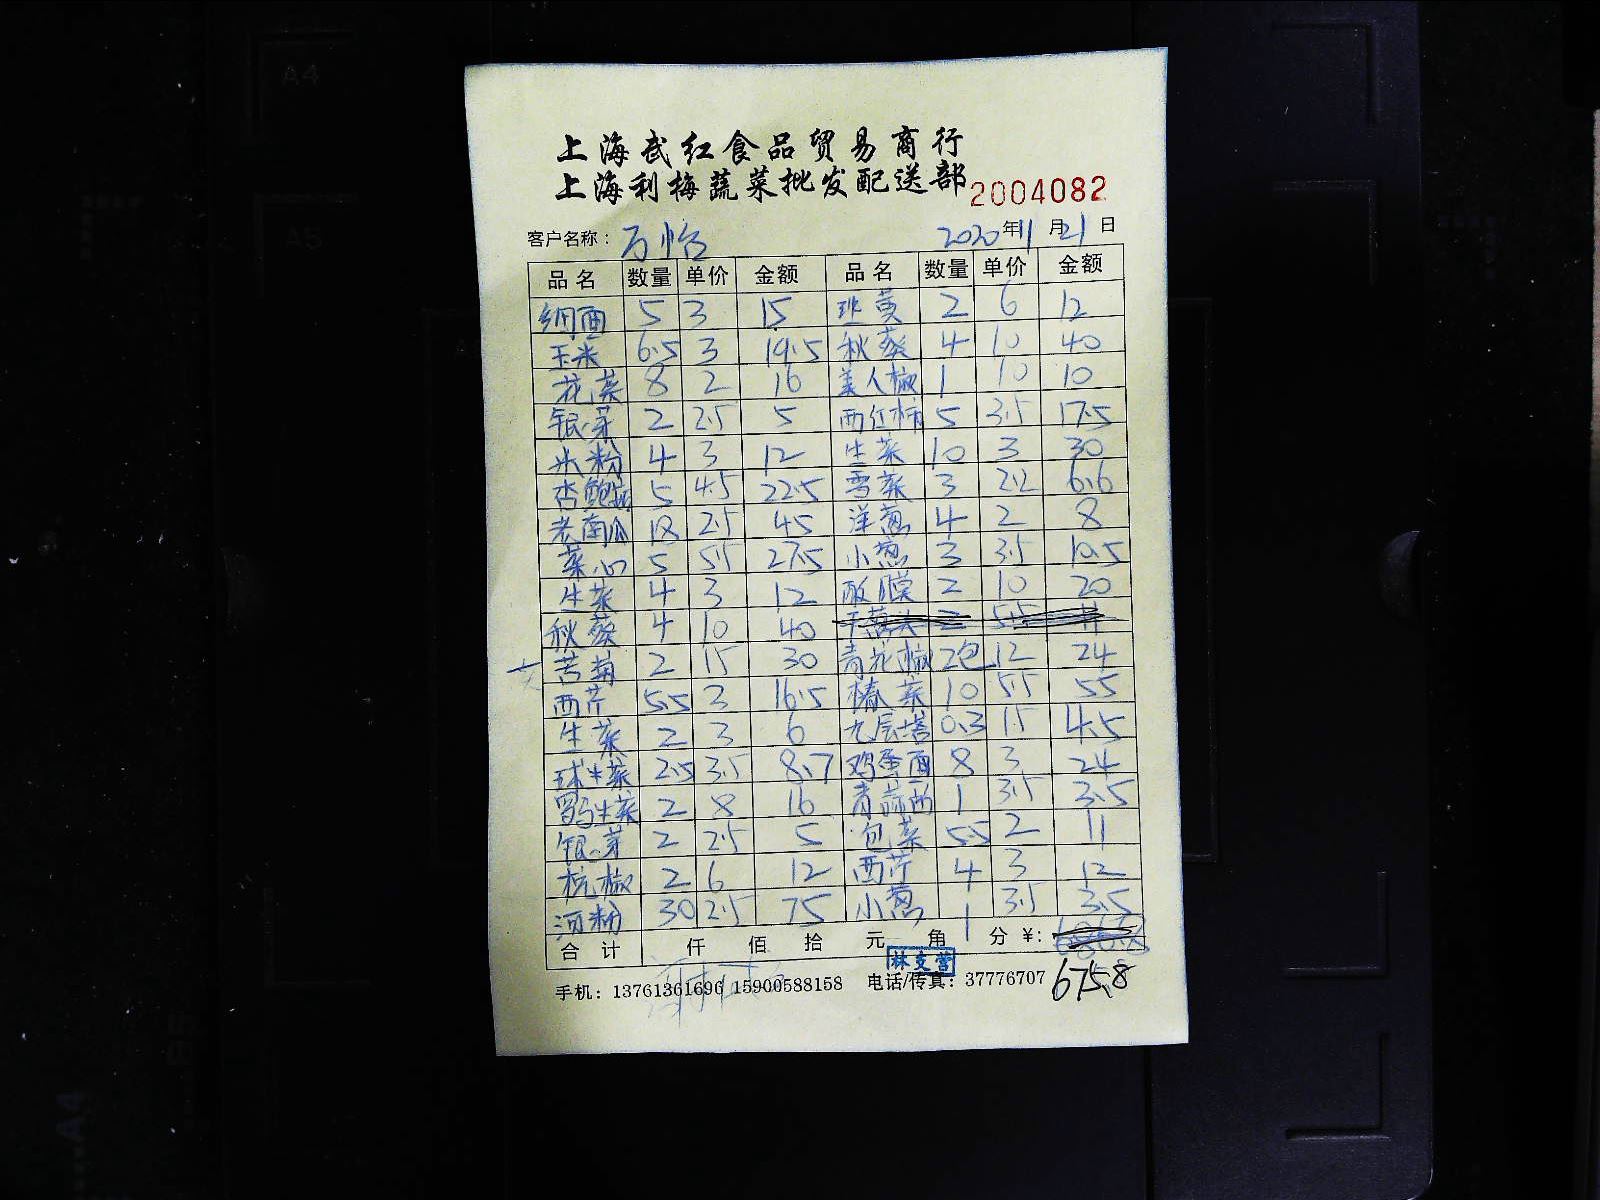 A4
A5
上海武红食品贸易商行
上海利梅蔬菜批发配送部 2004082
客户名称: 万怡 2020年11月21日
品名 数量 单价 金额 品名 数量 单价 金额
细面 5 3 15 班蓂 2 6 12
玉米 6.5 3 19.5 秋葵 4 10 40
花菜 8 2 16 美人椒 1 10 10
银芽 2 2.5 5 西红柿 5 3.5 17.5
米粉 4 3 12 生菜 10 3 30
杏鲍菇 5 4.5 22.5 雪菜 3 2.2 6.6
老南瓜 18 2.5 45 洋葱 4 2 8
菜心 5 5.5 27.5 小葱 3 3.5 10.5
生菜 4 3 12 2 10 20
秋葵 4 10 40 干葱头 2 5.5 11
苦菊 2 15 30 青花椒 2包 12 24
西芹 5.5 3 16.5 椿菜 10 5.5 55
生菜 2 3 6 九层塔 0.3 15 4.5
球生菜 2.5 3.5 8.7 鸡蛋面 8 3 24
罗马生菜 2 8 16 青蒜 1 3.5 3.5
银芽 2 2.5 5 包菜 5.5 2 11
杭椒 2 6 12 西芹 4 3 12
河粉 30 2.5 75 小葱 1 3.5 3.5
合计 仟 佰 拾 元 角 分 ¥:
林支营
手机: 13761361696 15900588158 电话/传真: 37776707 675.8
A4